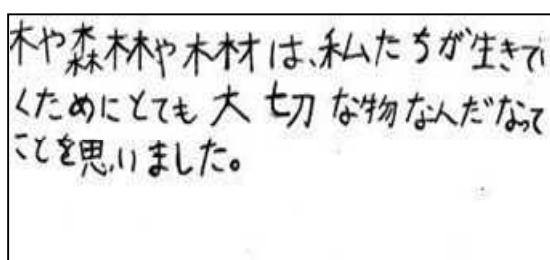 木や森林や木材は、私たちが生きてい
くためにとても大切な物なんだなって
ことを思いました。